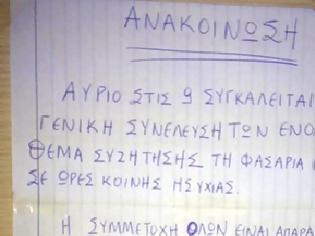 ΑΝΑΚΟΙΝΩΣΗ
ΑΥΡΙΟ ΣΤΙΣ 9 ΣΥΓΚΑΛΕΙΤΑΙ
ΓΕΝΙΚΗ ΣΥΝΕΛΕΥΣΗ ΤΩΝ ΕΝΟ
ΘΕΜΑ ΣΥΖΗΤΗΣΗΣ ΤΗ ΦΑΣΑΡΙΑ
ΣΕ ΩΡΕΣ ΚΟΙΝΗΣ ΗΣΥΧΙΑΣ.
Η ΣΥΜΜΕΤΟΧΗ ΟΛΩΝ ΕΙΝΑΙ ΑΠΑΡΑ